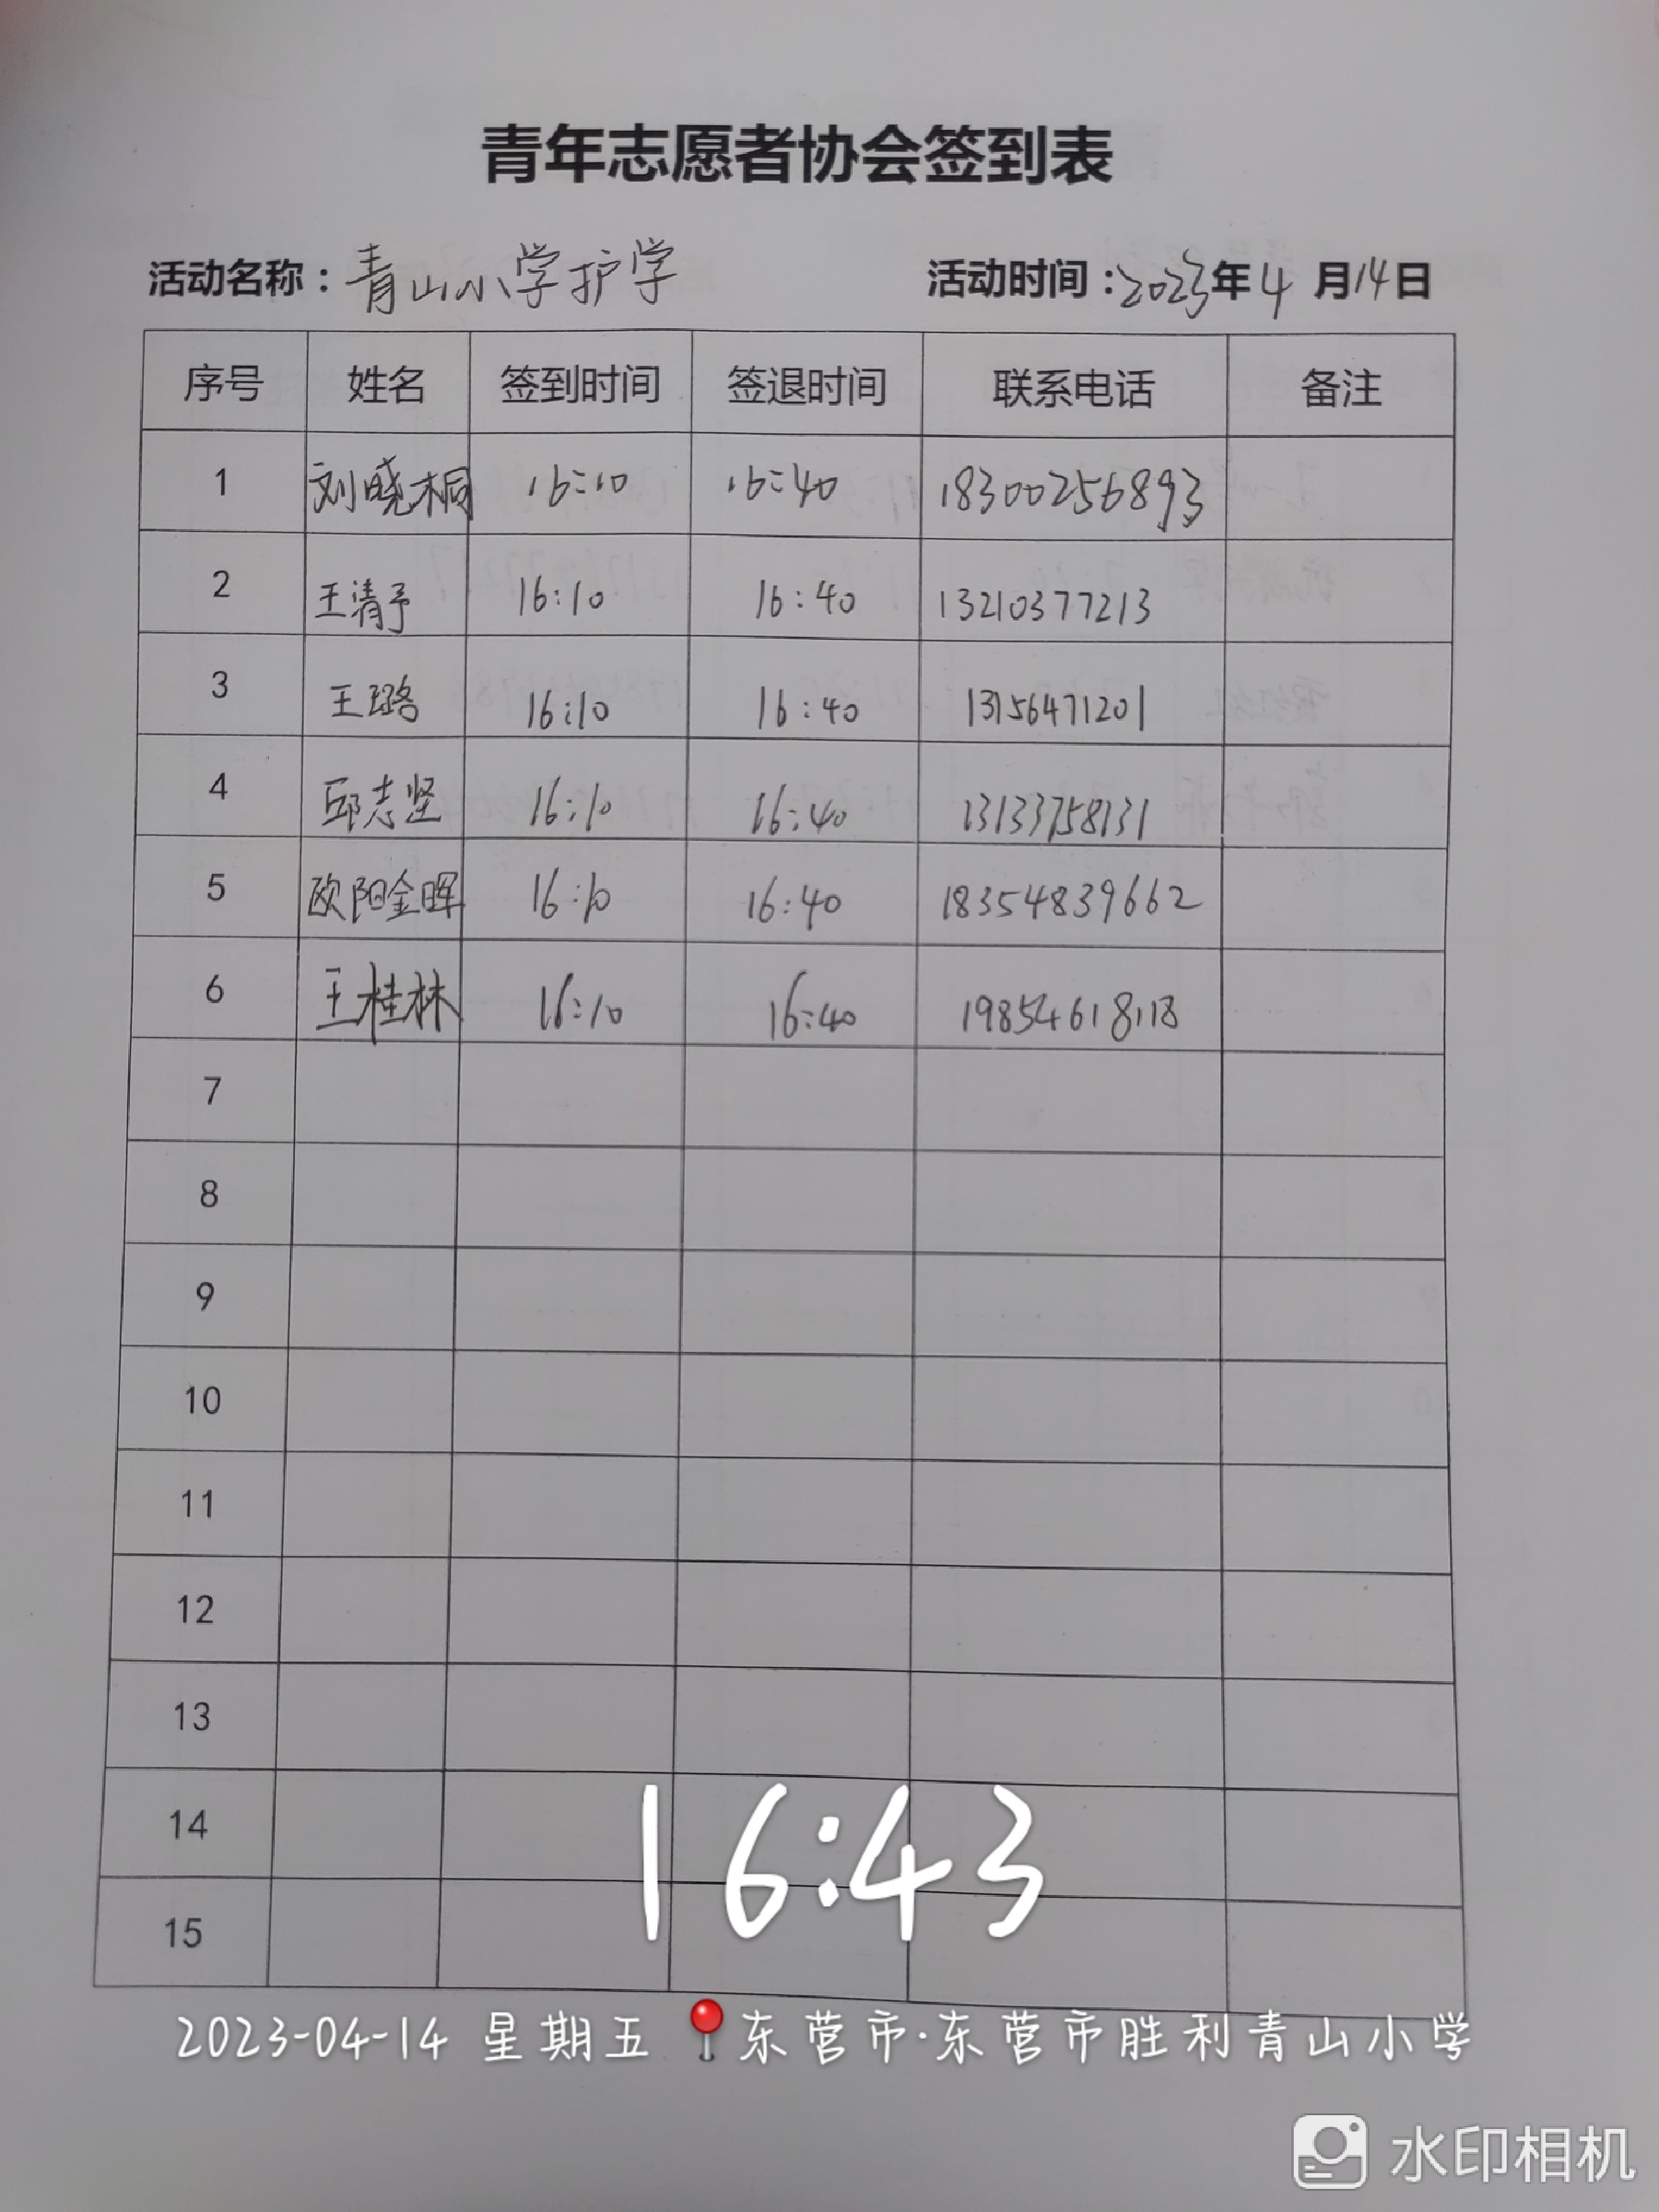 青年志愿者协会签到表
活动名称：青山小学护学 活动时间：2023年4月14日
序号 姓名 签到时间 签退时间 联系电话 备注
1 刘晓桐 16:10 16:40 18300256893
2 王清予 16:10 16:40 13210377213
3 王璐 16:10 16:40 13156471201
4 邱志坚 16:10 16:40 13133758131
5 欧阳金晖 16:10 16:40 18354839662
6 王桂林 16:10 16:40 19854618118
7
8
9
10
11
12
13
14
15
16:43
2023-04-14 星期五 东营市·东营市胜利青山小学
水印相机